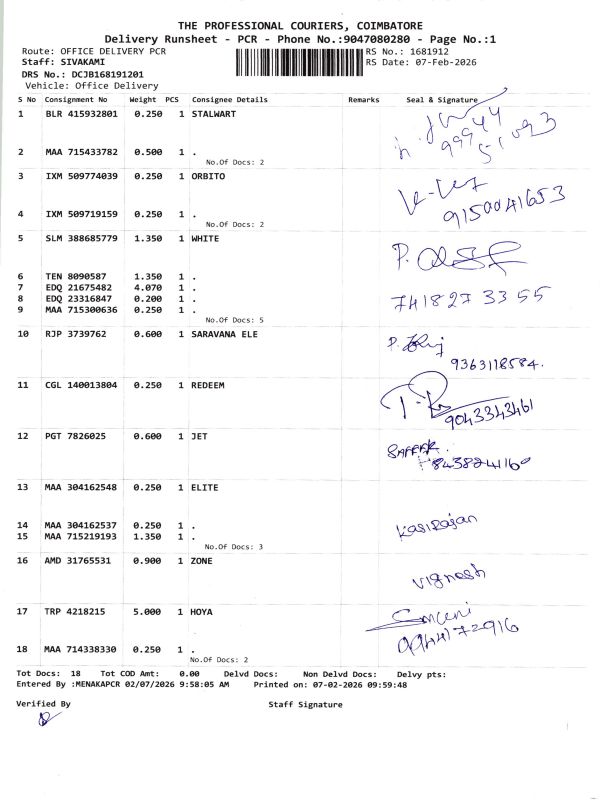 THE PROFESSIONAL COURIERS, COIMBATORE
Delivery Runsheet - PCR - Phone No.:9047080280 - Page No.:1
Route: OFFICE DELIVERY PCR RS No.: 1681912
Staff: SIVAKAMI RS Date: 07-Feb-2026
DRS No.: DCJB168191201
Vehicle: Office Delivery
S No Consignment No Weight PCS Consignee Details Remarks Seal & Signature
1 BLR 415932801 0.250 1 STALWART
99944
51093
2 MAA 715433782 0.500 1 .
No.Of Docs: 2
3 IXM 509774039 0.250 1 ORBITO
9150041653
4 IXM 509719159 0.250 1 .
No.Of Docs: 2
5 SLM 388685779 1.350 1 WHITE
6 TEN 8090587 1.350 1 .
7 EDQ 21675482 4.070 1 .
8 EDQ 23316847 0.200 1 .
7418273355
9 MAA 715300636 0.250 1 .
No.Of Docs: 5
10 RJP 3739762 0.600 1 SARAVANA ELE
9363118584.
11 CGL 140013804 0.250 1 REDEEM
9043343461
12 PGT 7826025 0.600 1 JET
13 MAA 304162548 0.250 1 ELITE
14 MAA 304162537 0.250 1 . Kasirajan
15 MAA 715219193 1.350 1 .
No.Of Docs: 3
16 AMD 31765531 0.900 1 ZONE
Vignesh
17 TRP 4218215 5.000 1 HOYA
9944172916
18 MAA 714338330 0.250 1 .
No.Of Docs: 2
Tot Docs: 18 Tot COD Amt: 0.00 Delvd Docs: Non Delvd Docs: Delvy pts:
Entered By :MENAKAPCR 02/07/2026 9:58:05 AM Printed on: 07-02-2026 09:59:48
Verified By Staff Signature